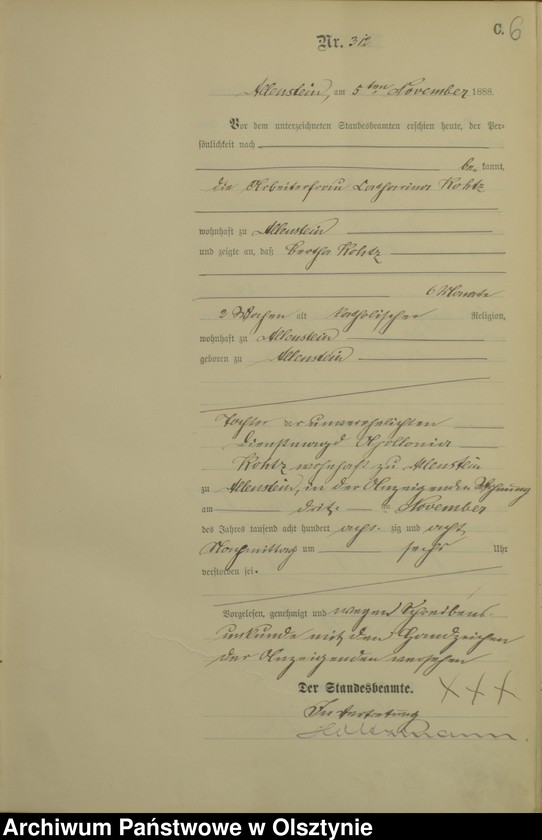 C. 6
Nr. 312
Allenstein, am 5ten November 1888.
Vor dem unterzeichneten Standesbeamten erschien heute, der Per-
sönlichkeit nach
be kannt,
die Arbeiterfrau Catharina Kohtz
wohnhaft zu Allenstein
und zeigte an, daß Bertha Kohtz
6 Monate
2 Wochen alt katholischer Religion,
wohnhaft zu Allenstein
geboren zu Allenstein
Tochter der unverehelichten
Dienstmagd Apollonia
Kohtz wohnhaft zu Allenstein
zu Allenstein, in der Anzeigenden Wohnung
am dritten November
des Jahres tausend acht hundert acht zig und acht
Nachmittag um sechs Uhr
verstorben sei.
Vorgelesen, genehmigt und wegen Schreibens-
unkunde mit den Handzeichen
der Anzeigenden versehen
Der Standesbeamte. XXX
In Vertretung
Archiwum Państwowe w Olsztynie